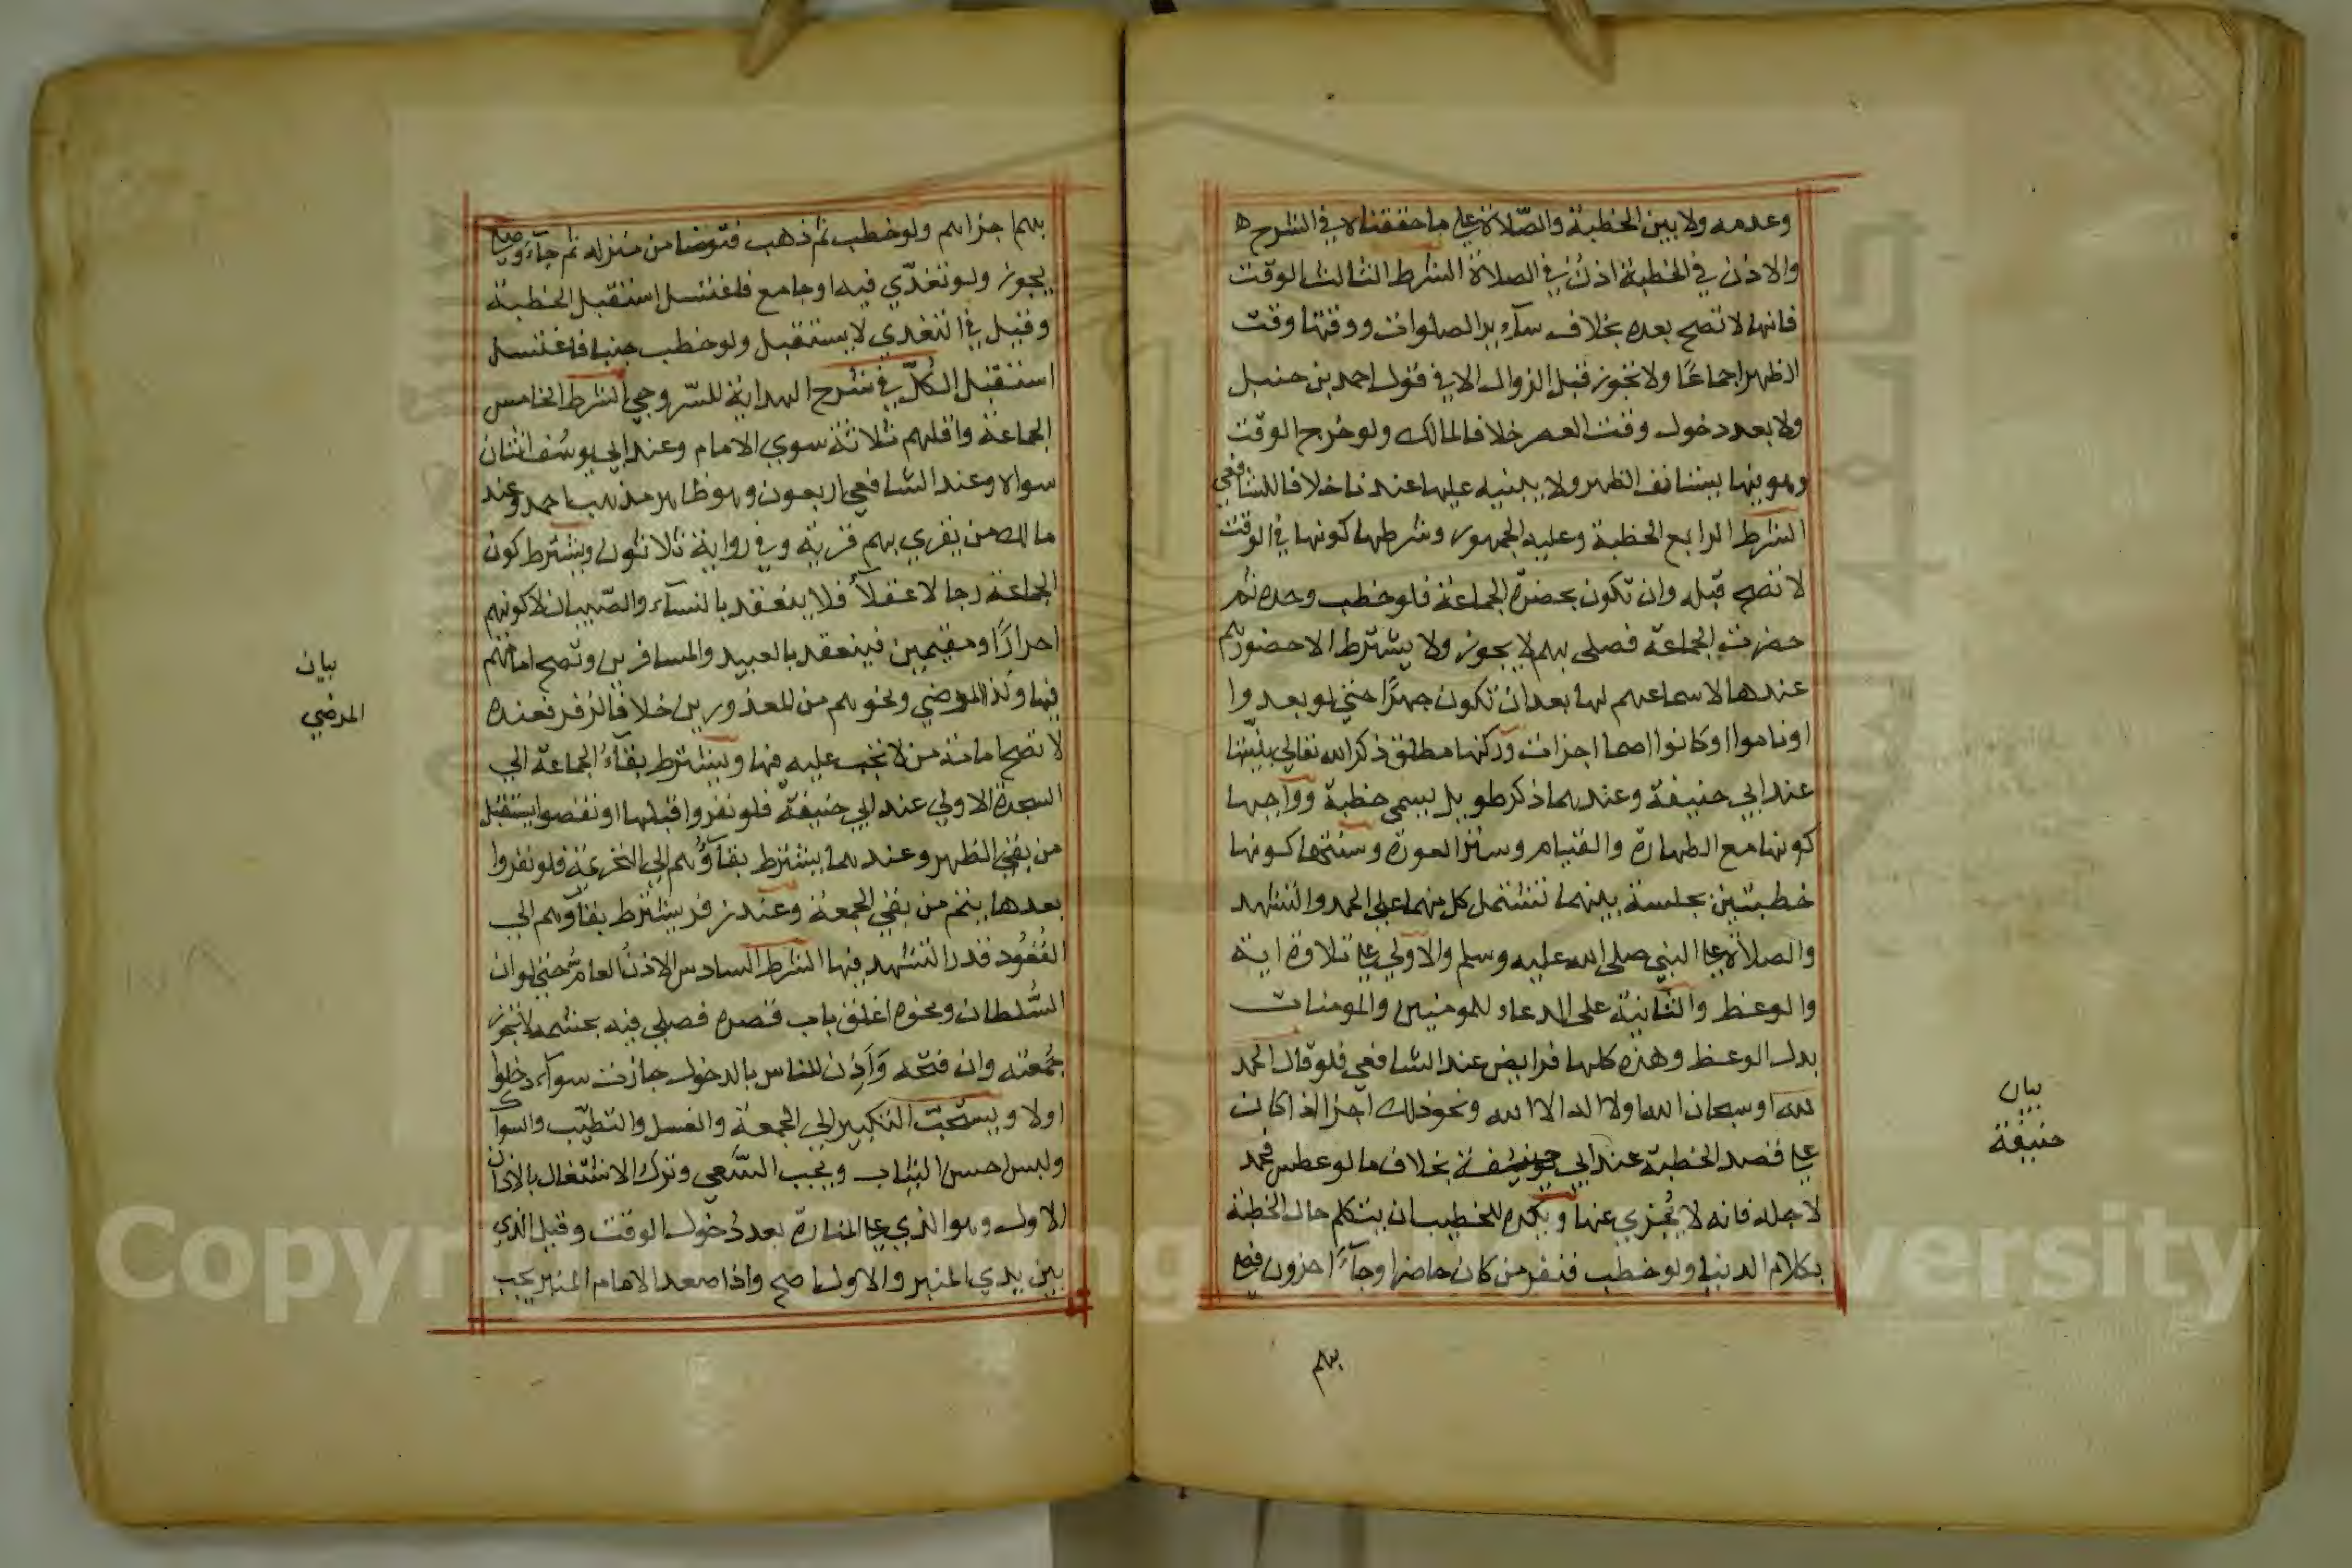 وعدمه ولا بين الخطبة والصلاة على ما حققناه في الشرح ه
والاذن في الخطبة اذن في الصلاة الشرط الثالث الوقت
فانها لا تصح بعده بخلاف سآءير الصلوات ووقتها وقت
الظهر اجماعًا ولا تجوز قبل الزوال الا في قول احمد بن حنبل
ولا بعد دخول وقت العصر خلافا لمالك ولو خرج الوقت
وهو فيها يستانف الظهر ولا يبنيه عليها عندنا خلافا للشافعي
الشرط الرابع الخطبة وعليه الجمهور وشرطها كونها في الوقت
لا تصح قبله وان تكون بحضرة الجماعة فلو خطب وحده ثم
حضرت الجماعة فصلى بهم لا يجوز ولا يشترط الا حضورهم
عندها لا سماعهم لها بعد ان تكون جهرًا حتى لو بعدوا
او ناموا او كانوا صما اجزات وركنها مطلق ذكر الله تعالى بنيتها
عند ابي حنيفة وعندهما ذكر طويل يسمى خطبة وواجبها
كونها مع الطهارة والقيام وستر العورة وسنتها كونها
خطبتين بجلسة بينهما تشتمل كل منهما على الحمد والتشهد
والصلاة على النبي صلى الله عليه وسلم والاولى على تلاوة اية
والوعظ والثانية على الدعاء للمومنين والمومنات
بدل الوعظ وهذه كلها فرايض عند الشافعي فلو قال الحمد
لله او سبحان الله او لا اله الا الله ونحو ذلك اجزا اذا كان
على قصد الخطبة عند ابي حنيفة بخلاف ما لو عطس فحمد
لاجله فانه لا يجزي عنها ويكره للخطيب ان يتكلم حال الخطبة
بكلام الدنيا ولو خطب فنفر من كان حاضرا وجآءَ اخرون فصلى
بهم
بيان
حنيفة
بهم اجزاهم ولو خطب ثم ذهب فتوضا من منزله ثم جآءَ وصلى
يجوز ولو تغدّي فيه او جامع فاغتسل استقبل الخطبة
وقيل في التغدي لا يستقبل ولو خطب جنبا فاغتسل
استقبل الكلّ في شرح الهداية للسّروجي الشرط الخامس
الجماعة واقلهم ثلاثة سوي الامام وعند ابي يوسُف اثنان
سواه وعند الشافعي اربعون وهو ظاهر مذهب احمد وعند
مالك من يقري بهم قرية وفي رواية ثلاثون ويشترط كون
الجماعة رجالا عقلاً فلا ينعقد بالنسآء والصّبيان لا كونهم
احرارًا ومقيمين فينعقد بالعبيد والمسافرين وتصح امامتهم
فيها وكذا المرضي ونحوهم من المعذورين خلافا لزفر فعنده
لا تصح امامة من لا تجب عليه فيها ويشترط بقآءُ الجماعة الى
السجدة الاولى عند ابي حنيفة فلو نفروا قبلها او نقصوا يستقبل
من بقي الظهر وعندهما يشترط بقآؤُهم الى التحريمة فلو نفروا
بعدها يتم من بقي الجمعة وعند زفر يشترط بقآوهم الى
القُعُود قدر التشهد فيها الشرط السادس الاذن العام حتى لو ان
السُّلطان ونحوه اغلق باب قصره فصلى فيه بحشمه لا تجوز
جُمعته وان فتحه وَاَذِن للناس بالدخول جازت سوآء دخلوا
اولا ويستحبّ التبكير الى الجمعة والغسل والتطيّب والسواك
ولبس احسن الثياب ويجب السّعي وترك الاشتغال بالاذان
الاول وهو الذي على المنارة بعد دُخول الوقت وقيل الذي
بين يدي المنبر والاول اصح واذا صعد الامام المنبر يجب
بيان
المرضي
Copyright King University